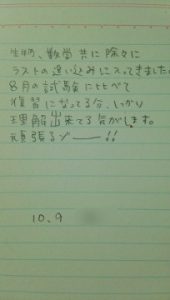 生物、数学共に除々に
ラストの追い込みに入ってきました。
8月の試験に比べて
復習になってる分、しっかり
理解出来てる気がします。
頑張るゾー!!
10.9